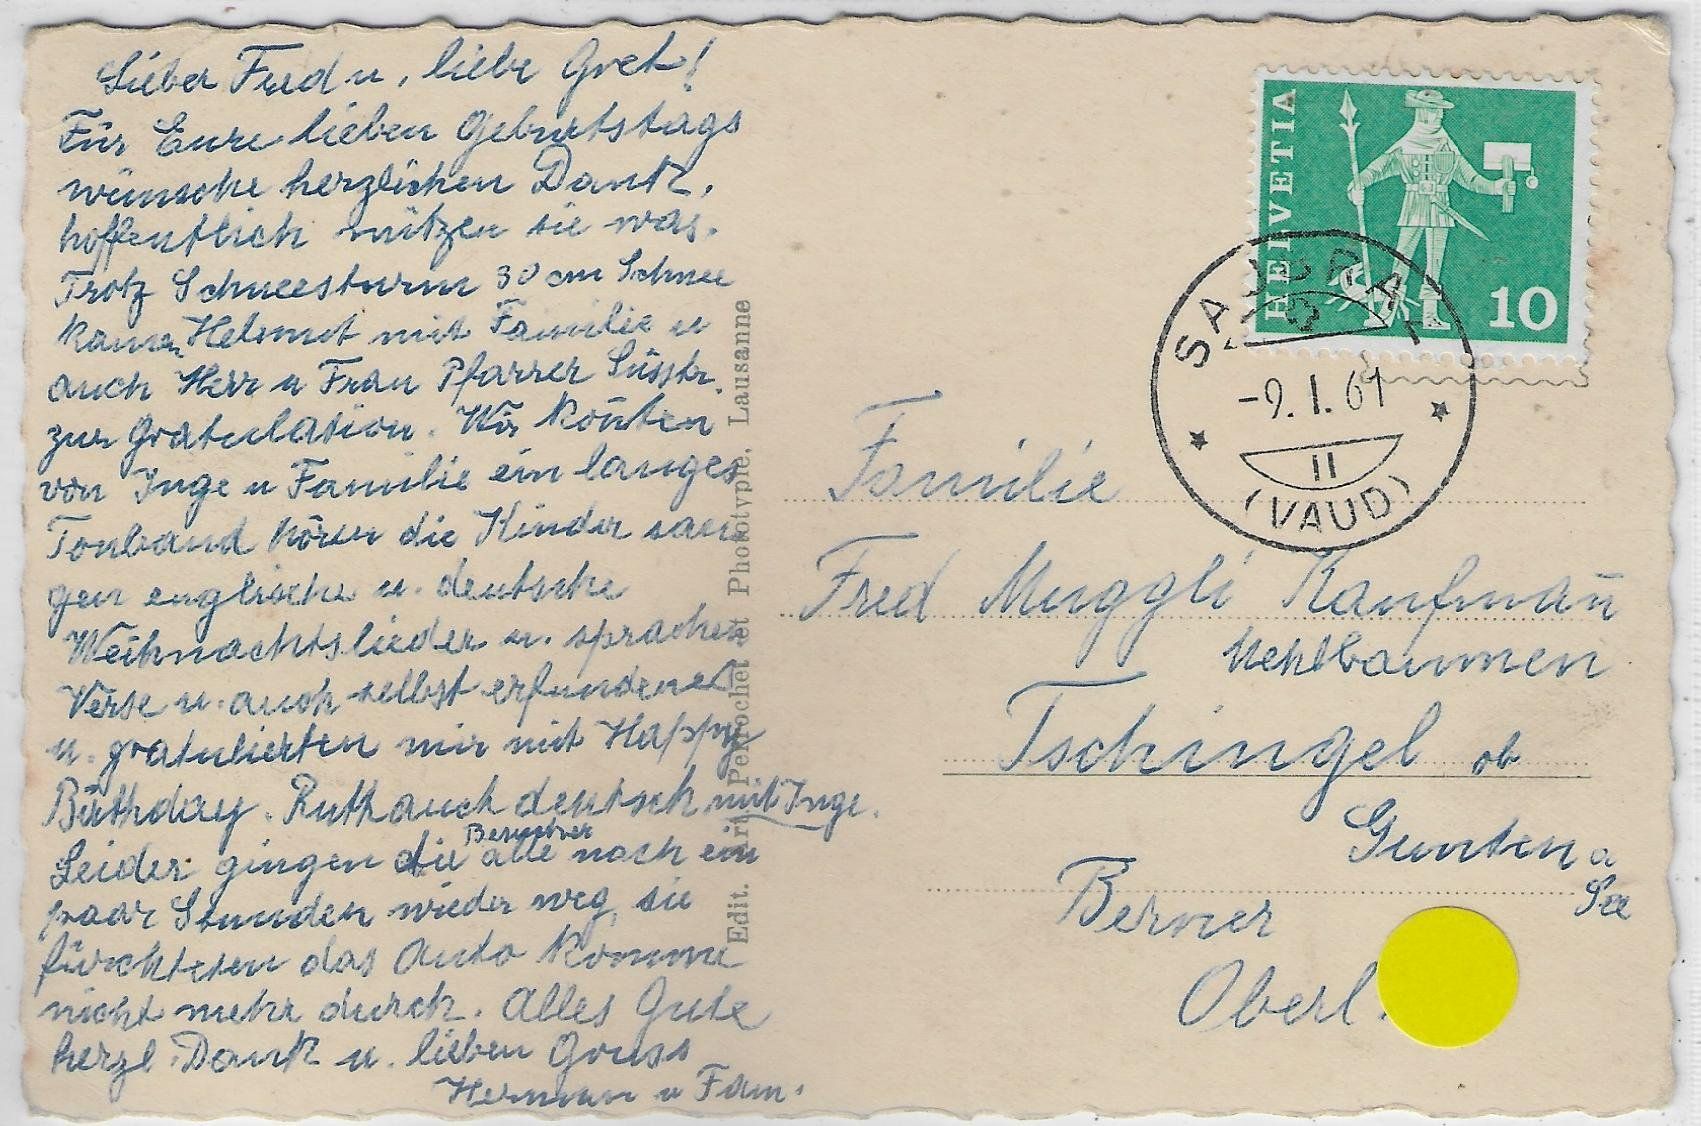 Lieber Fred u. liebe Gret!
Für Eure lieben Geburtstags
wünsche herzlichen Dank,
hoffentlich nützen sie was.
Trotz Schneesturm 30 cm Schnee
kamen Helmut mit Familie u
auch Herr u Frau Pfarrer Süsstr.
zur Gratulation. Wir koñten
von Inge u Familie ein langes
Tonband hören die Kinder san
gen englische u. deutsche
Weihnachtslieder u. sprachen
Verse u. auch selbst erfundenes
u. gratulierten mir mit Happy
Birthday. Ruth auch deutsch mit Inge.
Leider gingen die Besucher alle nach ein
paar Stunden wieder weg, sie
fürchteten das Auto komme
nicht mehr durch. Alles Gute
herzl. Dank u. lieben Gruss
Herman u Fam.
Edit. Art. Perrochet et Phototypie, Lausanne
HELVETIA
10
-9. I. 61
II
(VAUD)
Familie
Fred Muggli Kaufmañ
Mehlbaumen
Tschingel ob
Gunten a
See
Berner
Oberl.